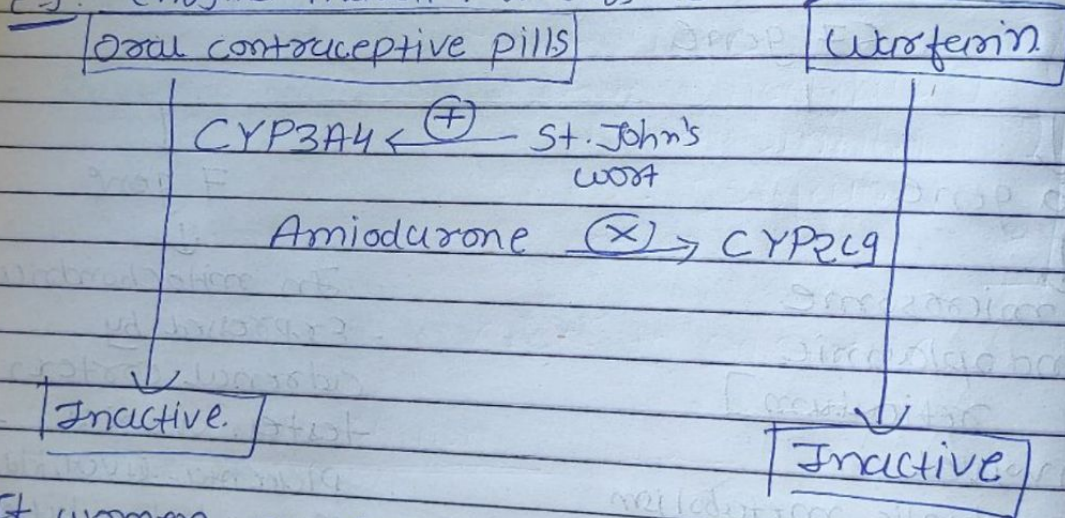 Oral contraceptive pills Warfarin
CYP3A4 ← (+) St. John's
wort
Amiodarone (x) → CYP2C9
Inactive.
Inactive